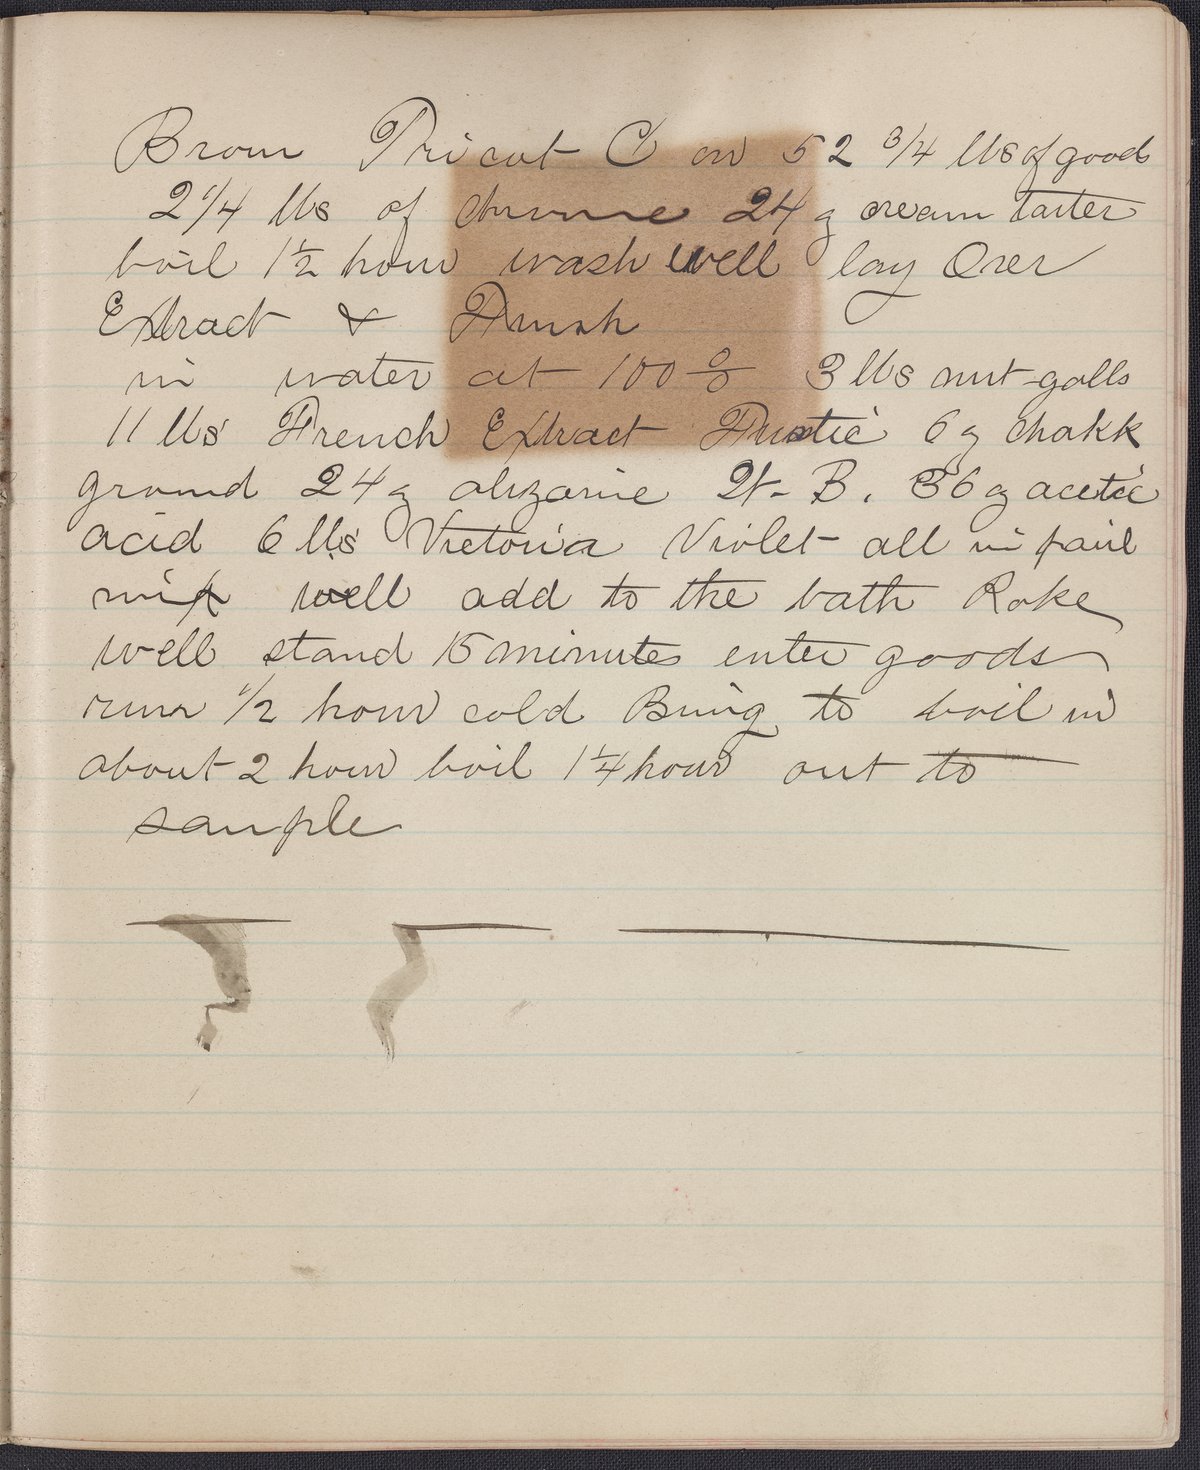 Brown Tricot C on 52 3/4 lbs of goods
2 1/4 lbs of chrome 24 g cream tarter
boil 1 1/2 hour wash well lay Over
Extract & Finish
in water at 100 % 3 lbs nut-galls
11 lbs French Extract Fustic 6 g chalk
ground 24 g alizarine W. B. 36 g acetic
acid 6 lbs Victoria Violet all in pail
mix well add to the bath Rake
well stand 15 minutes enter goods
run 1/2 hour cold Bring to boil in
about 2 hour boil 1 1/4 hour out to
sample